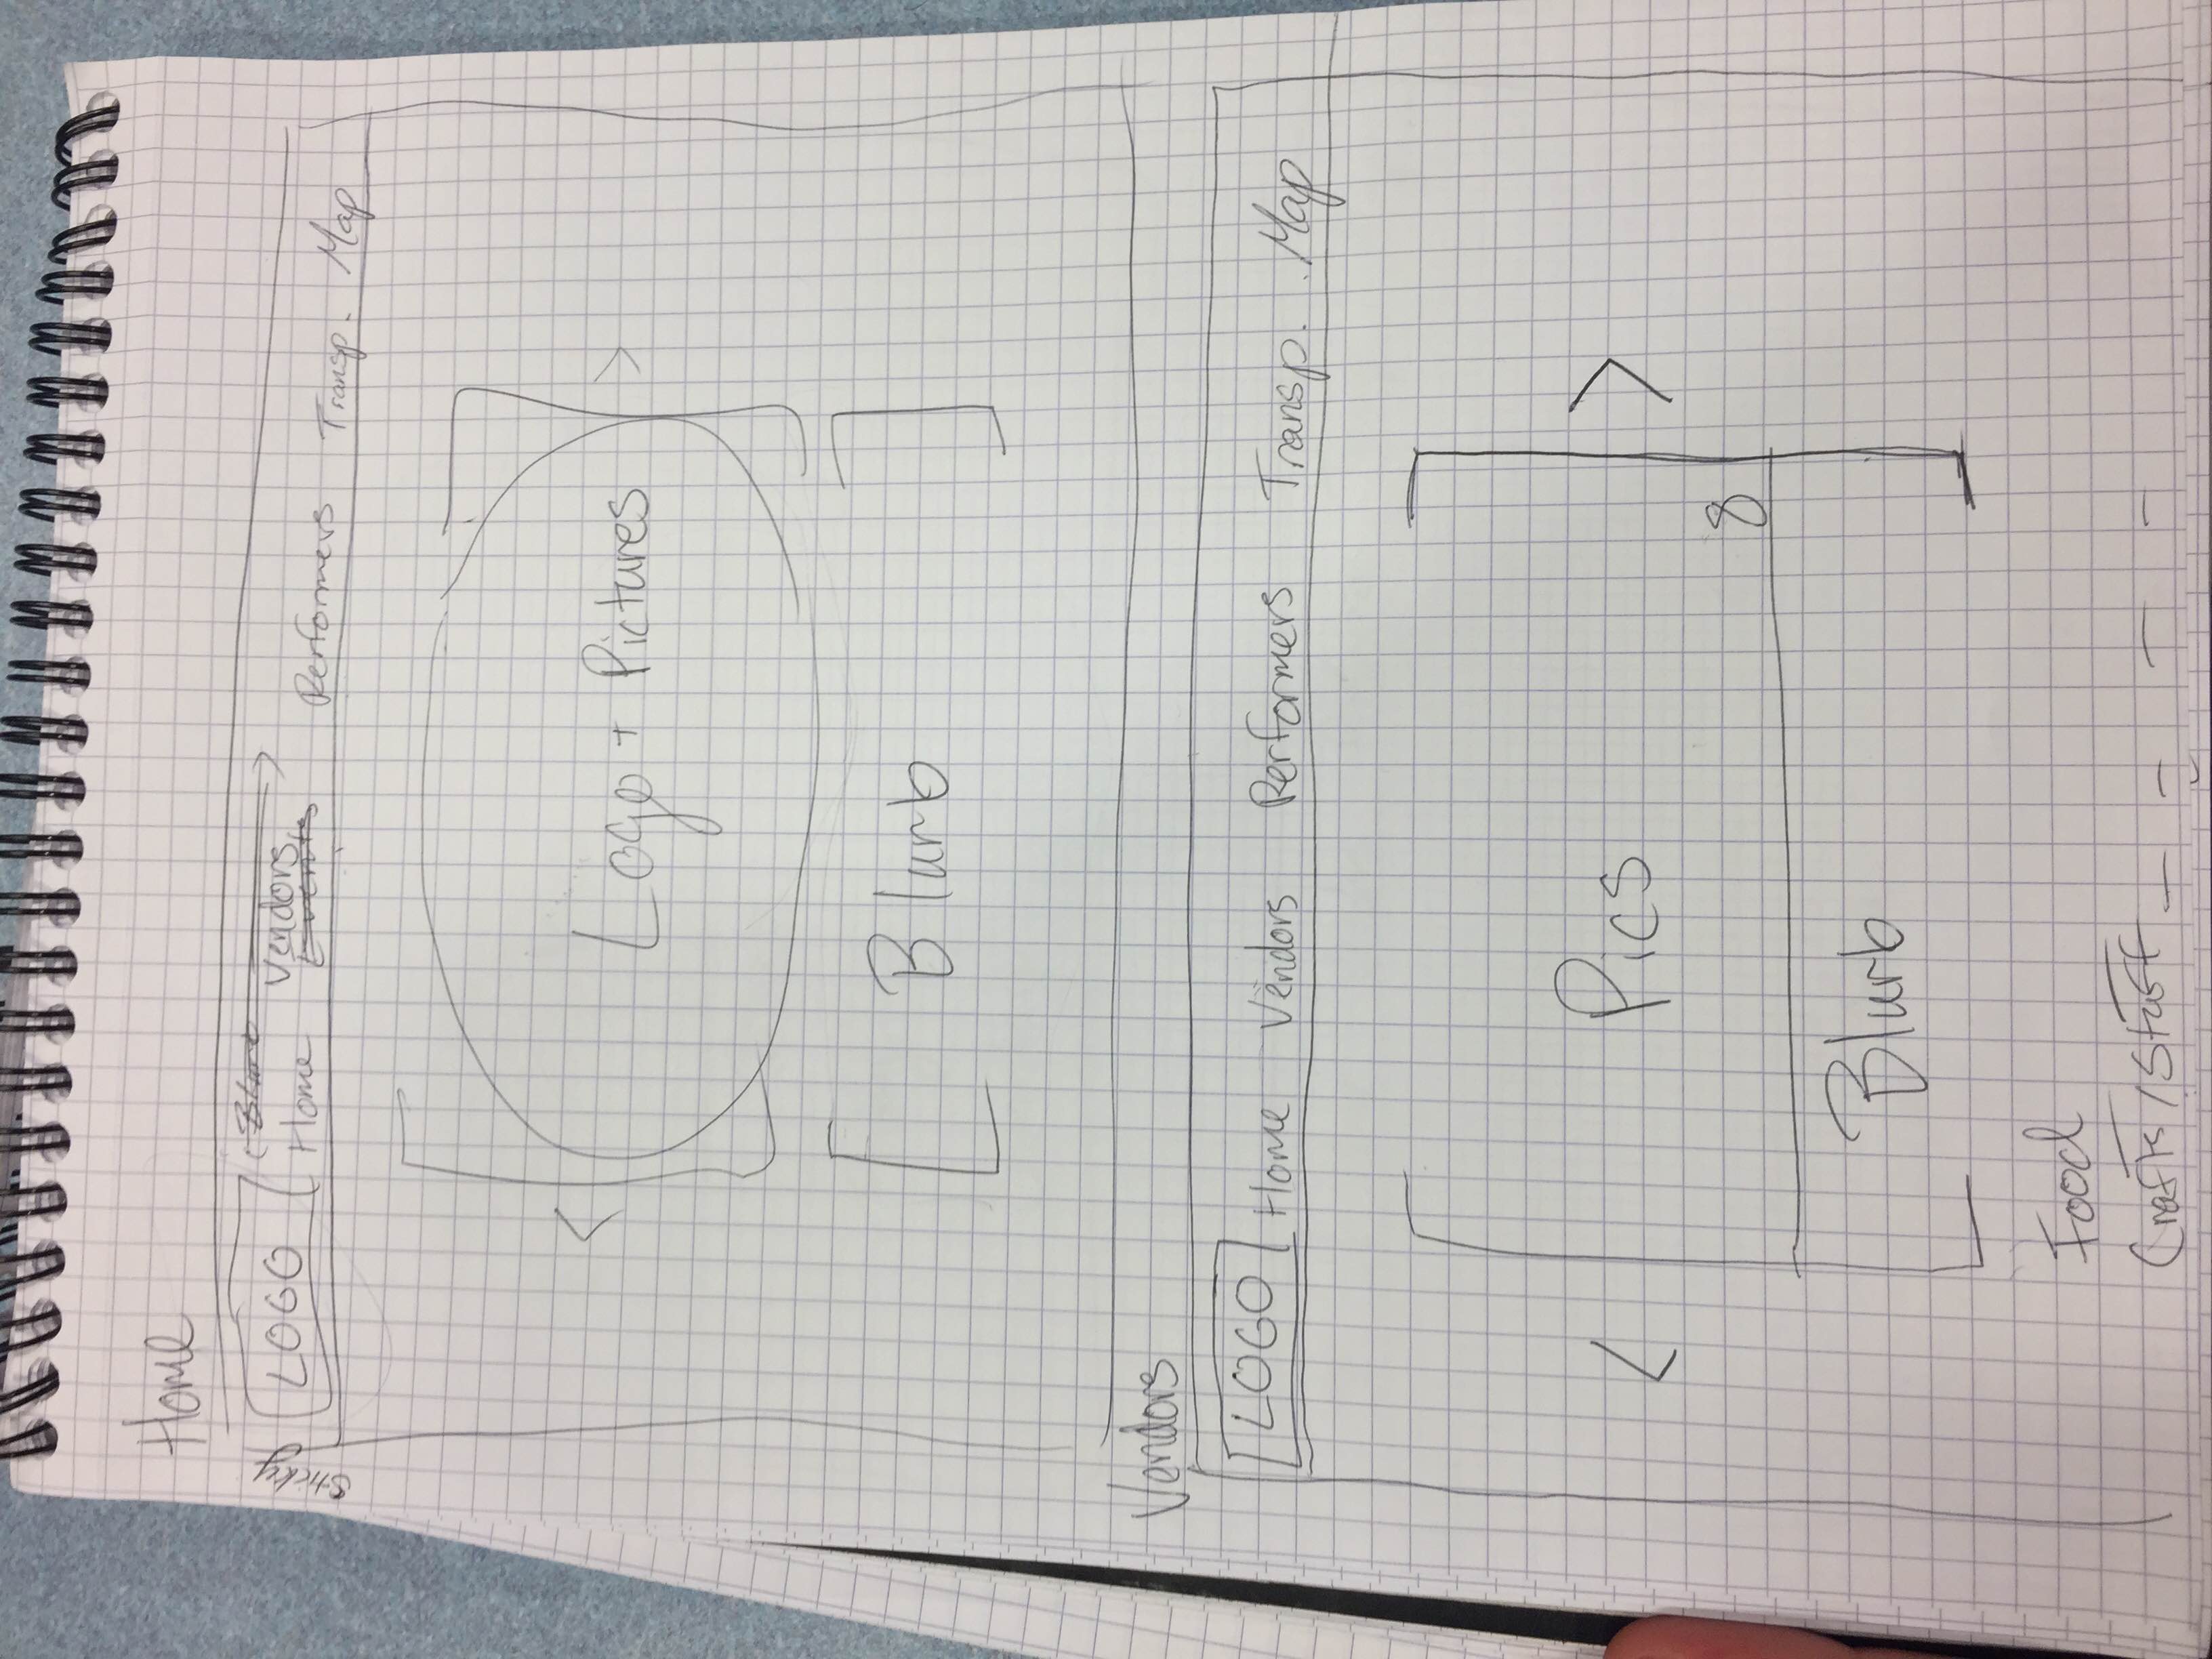 Home
Sticky
LOGO
Blurb
Home Vendors Events Performers Transp. Map
< Logo + Pictures >
Blurb
Vendors
LOGO Home Vendors Performers Transp. Map
< Pics >
8
Blurb
Food
Crafts/Stuff